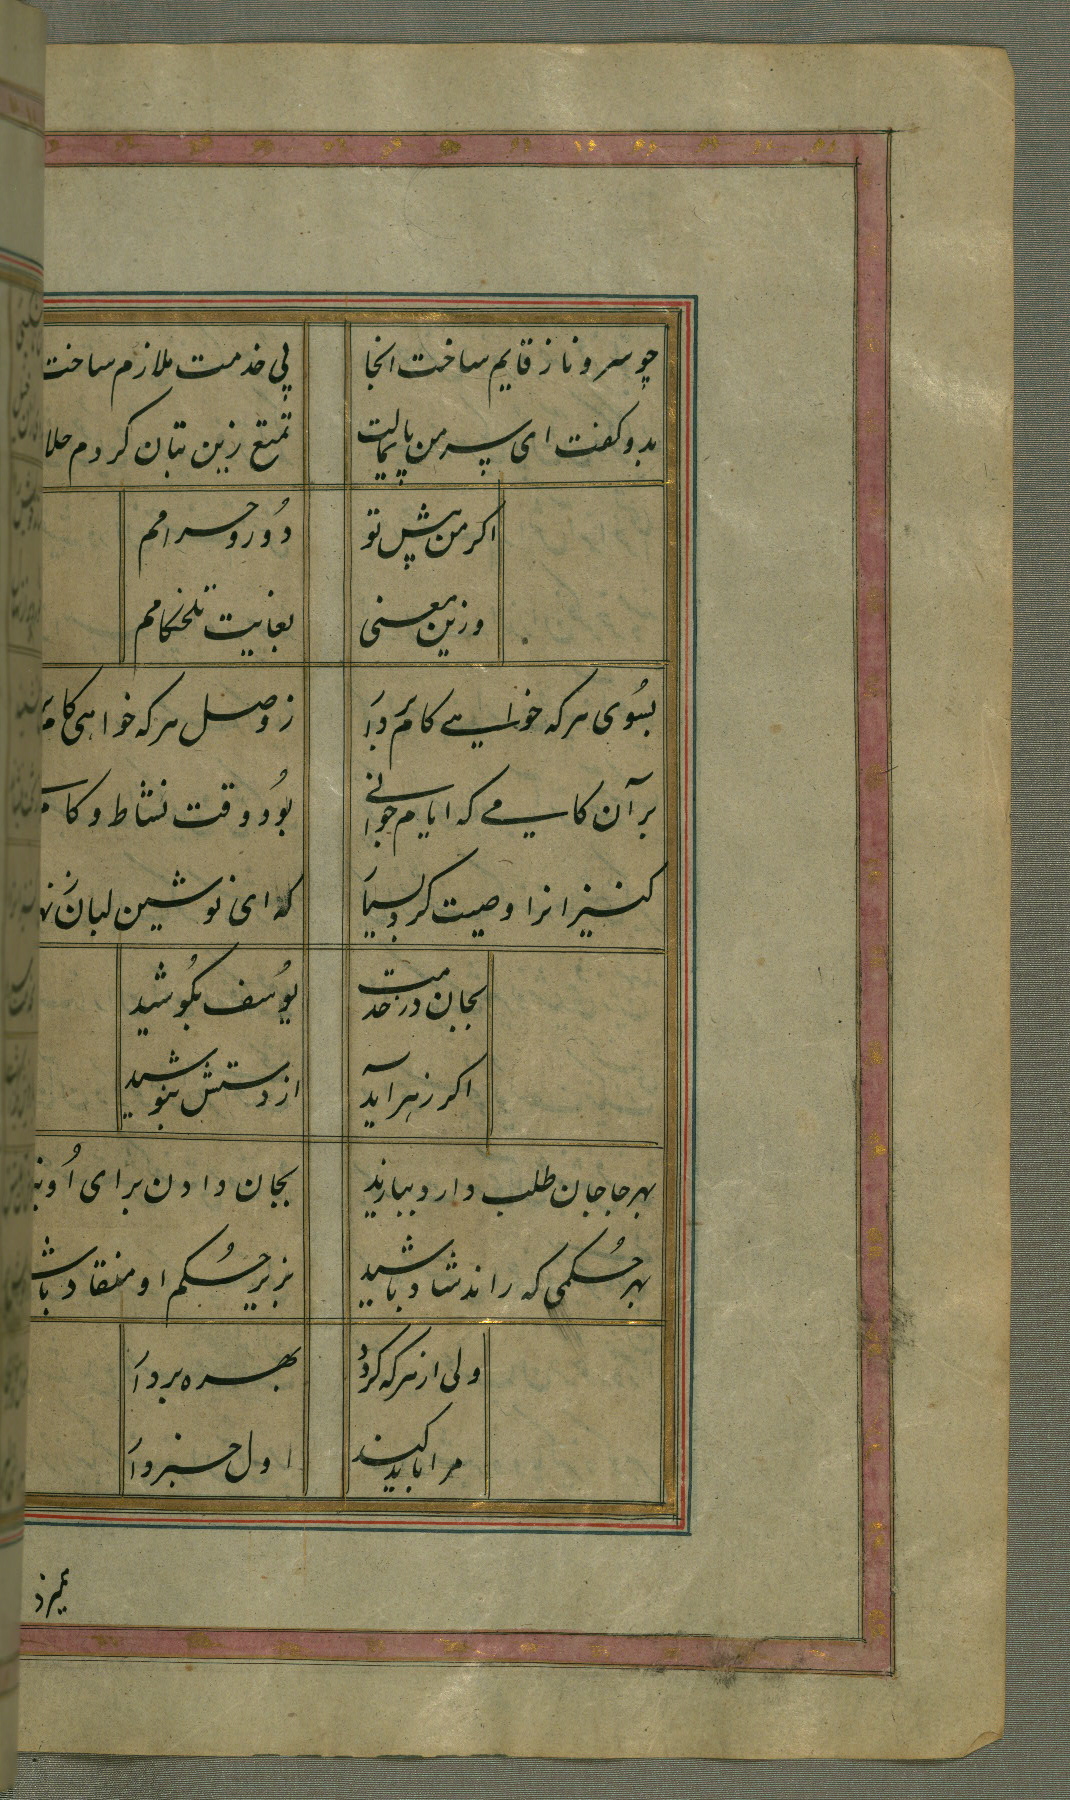 چو سرو ناز قایم ساخت انجا پی خدمت ملازم ساخت
بدو کفت ای سر من پایمالت تمتع زین بتان کردم حلا
اکر من پیش تو دور و حرامم
وزین معنی بغایت تلخکامم
بسوی هر که خواهی کام بردار ز وصل هر که خواهی کام
بر آن کامی که ایام جوانی بود وقت نشاط و
کنیزانرا وصیت کرد بسیار که ای نوشین لبان
بجان در خدمت یوسف بکوشید
اکر زهر اید از دستش بنوشید
بهر جا جان طلب دارد ببازید بجان دادن برای او
بهر حکمی که راند شاد باشید بزیر حکم او منقاد
ولی از هر که کردد بهره بردار
مرا باید کند اول خبردار